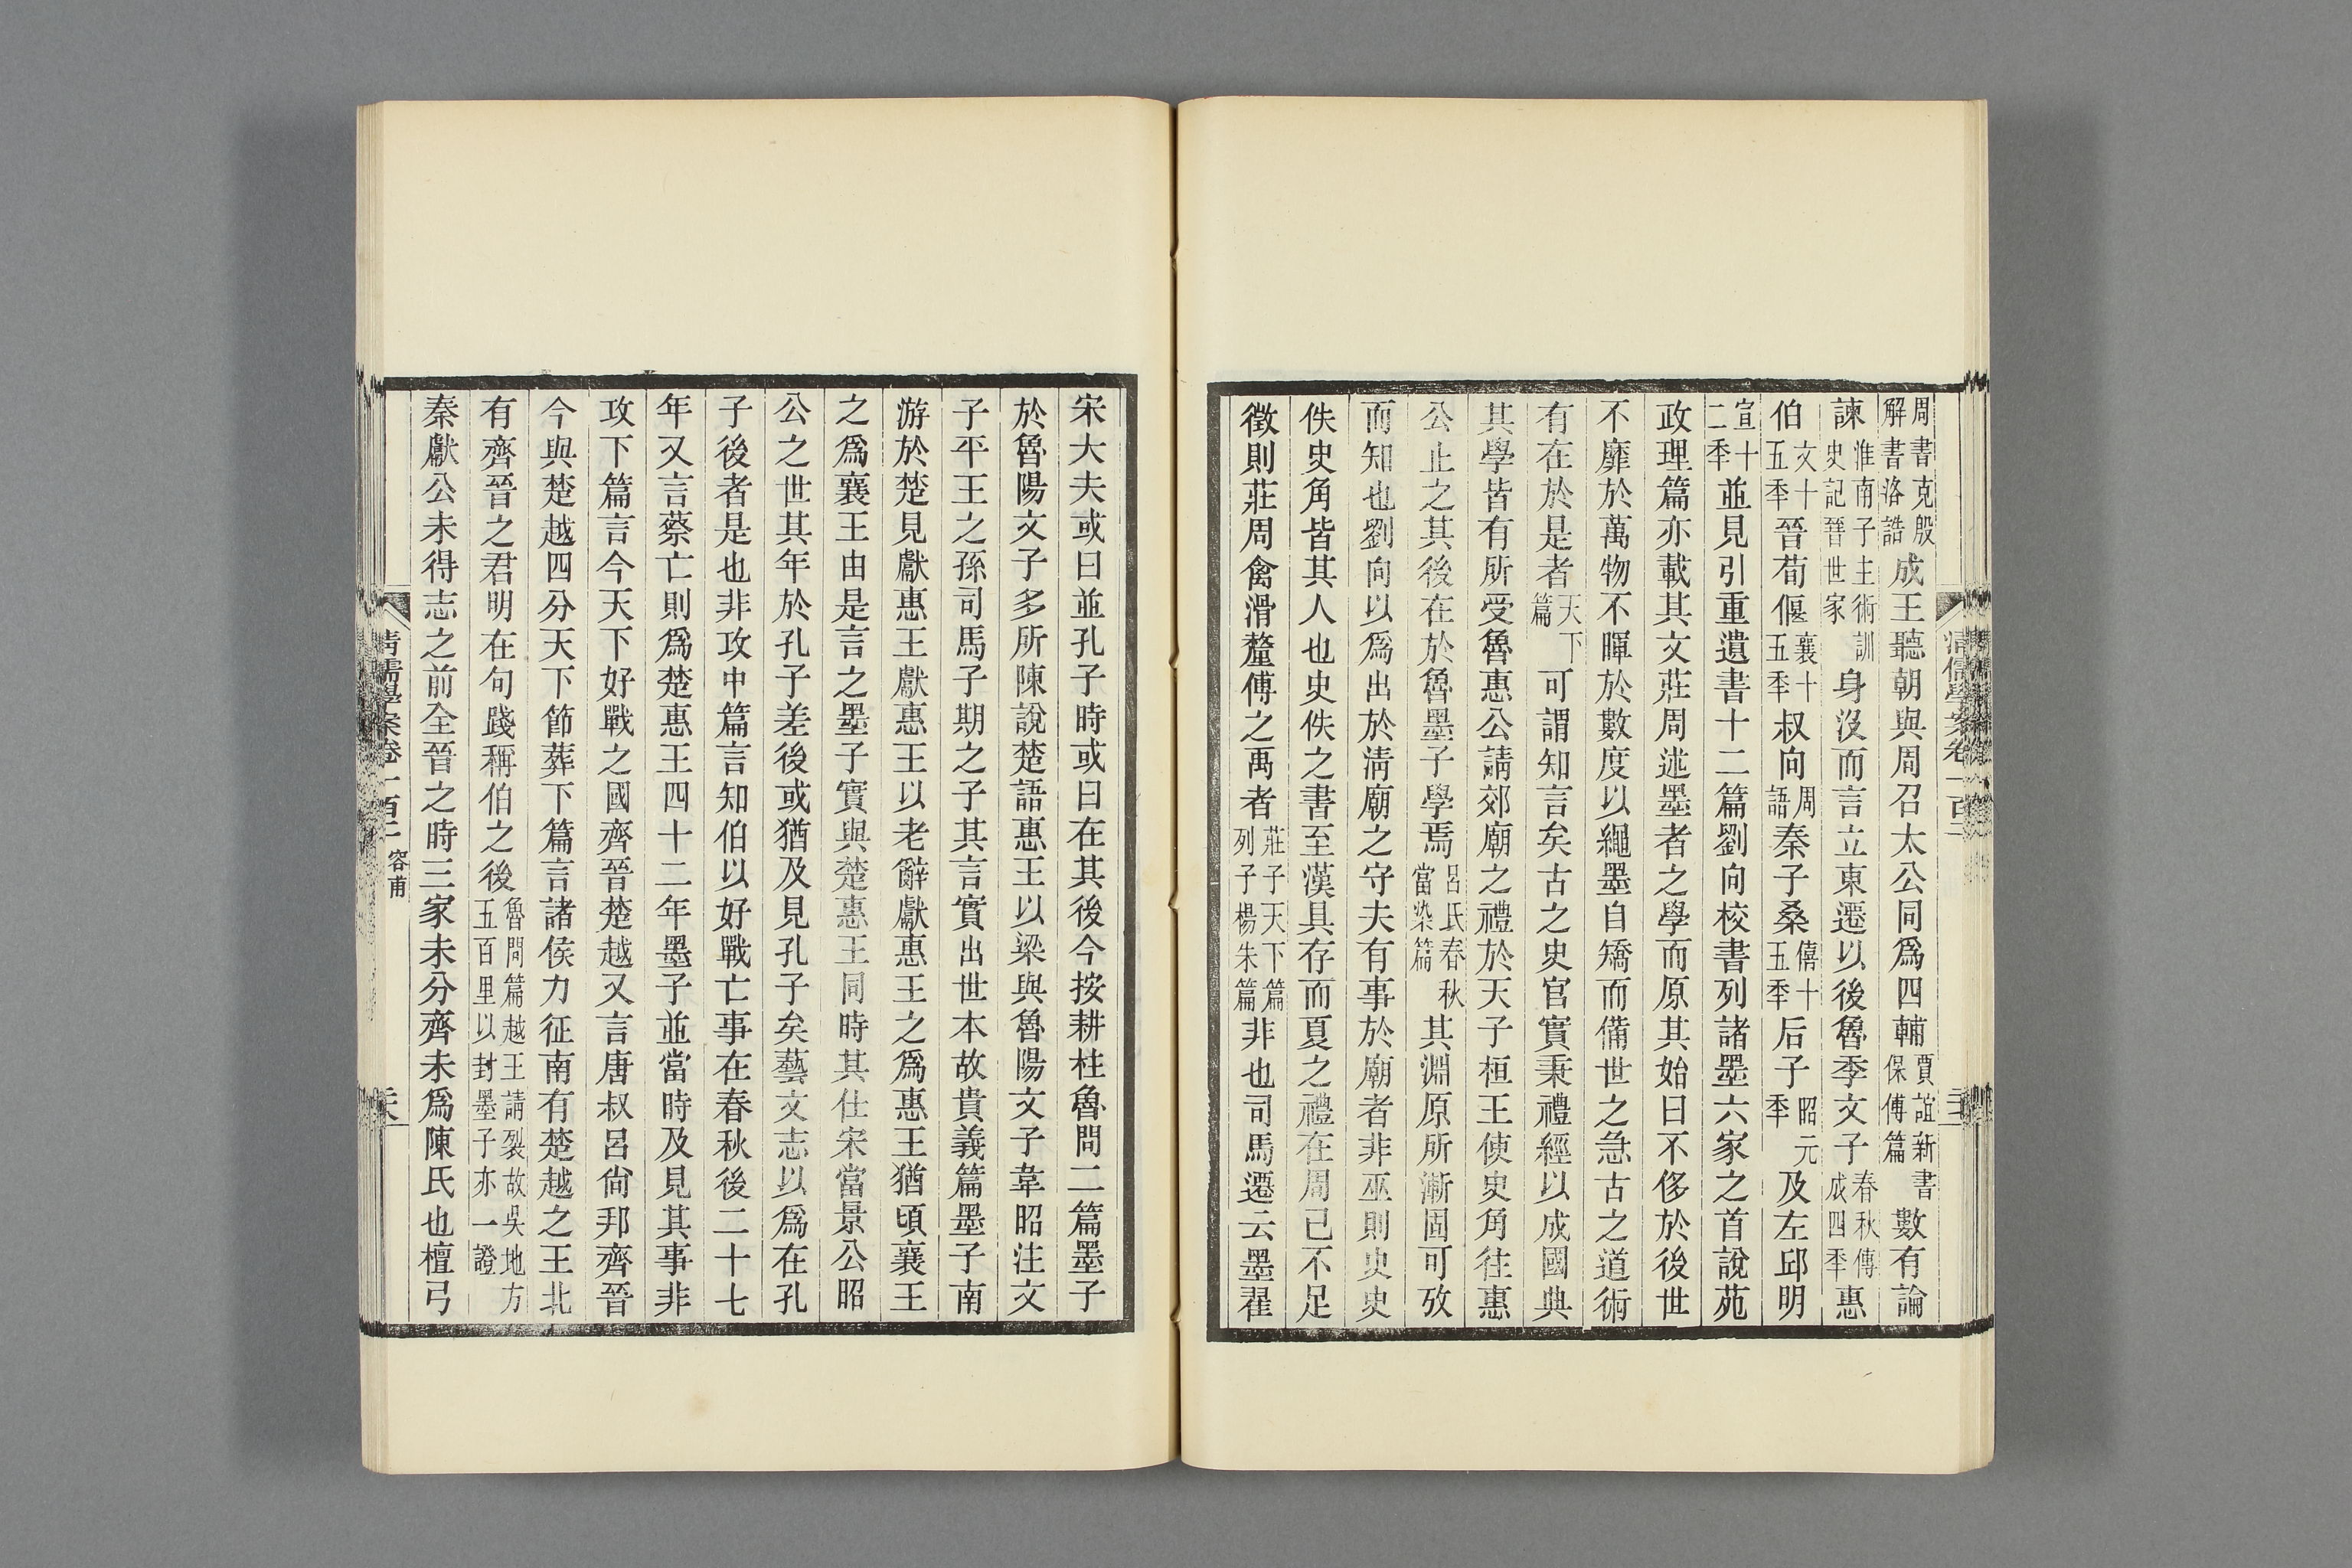 周書克殷解書洛誥成王聽朝與周召太公同爲四輔賈誼新書保傅篇數有論
諫淮南子主術訓史記晉世家身沒而言立東遷以後魯季文子春秋傳成四秊惠
伯文十五秊晉荀偃襄十五秊叔向周語秦子桑僖十五秊后子昭元秊及左邱明
宣十二秊並見引重遺書十二篇劉向校書列諸墨六家之首說苑
政理篇亦載其文莊周述墨者之學而原其始曰不侈於後世
不靡於萬物不暉於數度以繩墨自矯而備世之急古之道術
有在於是者天下篇可謂知言矣古之史官實秉禮經以成國典
其學皆有所受魯惠公請郊廟之禮於天子桓王使史角往惠
公止之其後在於魯墨子學焉呂氏春秋當染篇其淵原所漸固可攷
而知也劉向以爲出於淸廟之守夫有事於廟者非巫則史史
佚史角皆其人也史佚之書至漢具存而夏之禮在周已不足
徵則莊周禽滑釐傅之禹者莊子天下篇列子楊朱篇非也司馬遷云墨翟
清儒學案卷一百二
宋大夫或曰並孔子時或曰在其後今按耕柱魯問二篇墨子
於魯陽文子多所陳說楚語惠王以梁與魯陽文子韋昭注文
子平王之孫司馬子期之子其言實出世本故貴義篇墨子南
游於楚見獻惠王獻惠王以老辭獻惠王之爲惠王猶頃襄王
之爲襄王由是言之墨子實與楚惠王同時其仕宋當景公昭
公之世其年於孔子差後或猶及見孔子矣藝文志以爲在孔
子後者是也非攻中篇言知伯以好戰亡事在春秋後二十七
年又言蔡亡則爲楚惠王四十二年墨子並當時及見其事非
攻下篇言今天下好戰之國齊晉楚越又言唐叔呂尙邦齊晉
今與楚越四分天下節葬下篇言諸侯力征南有楚越之王北
有齊晉之君明在句踐稱伯之後魯問篇越王請裂故吳地方五百里以封墨子亦一證
秦獻公未得志之前全晉之時三家未分齊未爲陳氏也檀弓
清儒學案卷一百二 容甫